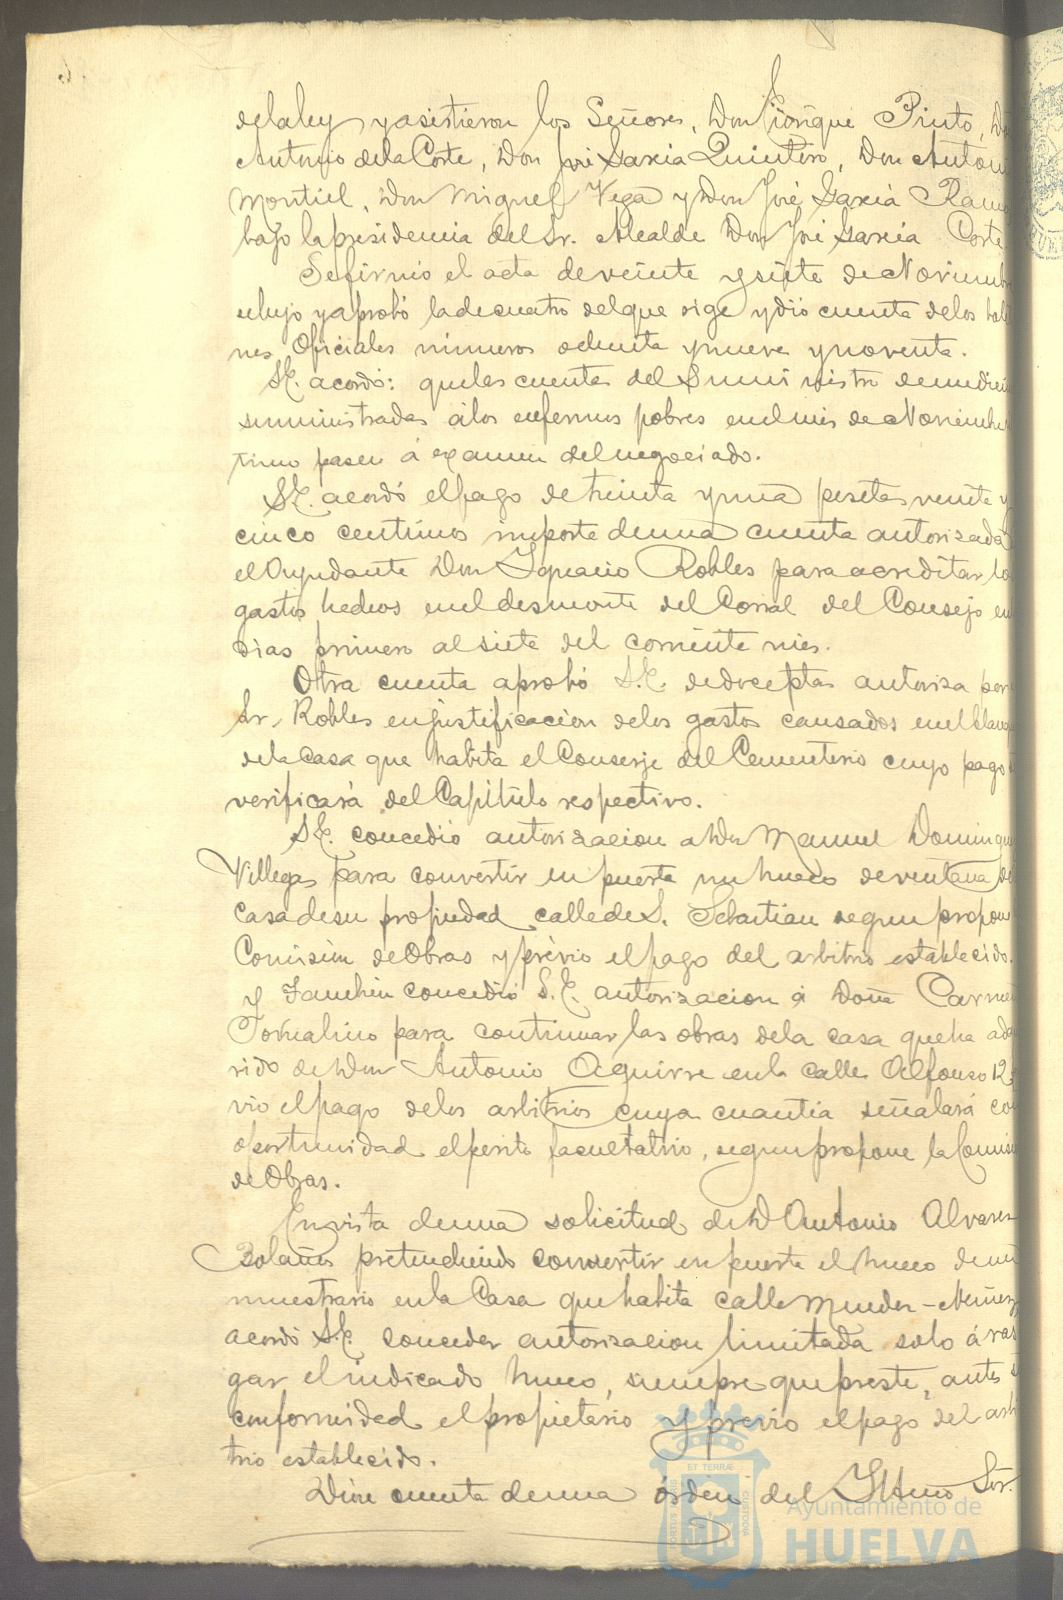 de la ley y asistieron los Señores, Don Enrique Pinto, Don
Antonio de la Corte, Don José Garcia Quintero, Don Anton
Montiel, Don Miguel Vega y Don José Garcia Ram
bajo la presidencia del Sr. Alcalde Don José Garcia Corte
Se firmó el acta de veinte y siete de Noviembre
y aprobó la de cuatro del que rige y dió cuenta de los bole
nes Oficiales números ochenta y nueve y noventa.
S.E. acordó: que las cuentas del Suministro de medici
suministradas á los enfermos pobres en el mes de Noviembre
timo pasen á examen del negociado.
S.E. acordó el pago de treinta y una pesetas veinte y
cinco centimos importe de una cuenta autorizada
el Ayudante Don Ignacio Robles para acreditar lo
gastos hechos en el desmonte del Corral del Consejo en
dias primero al siete del corriente mes.
Otra cuenta aprobó S.E. de doce ptas autoriza por
Sr. Robles en justificacion de los gastos causados en el blanq
de la Casa que habita el Conserje del Cementerio cuyo pago
verificará del Capítulo respectivo.
S.E. concedió autorizacion a Don Manuel Domingu
Villegas para convertir en puerta un hueco de ventana de
casa de su propiedad calle de S. Sebastian segun propon
Comision de Obras y prévio el pago del arbitrio establecido.
Y tambien concedió S.E. autorizacion á Doña Carmen
para continuar las obras de la casa que ha adq
rido de Don Antonio Aguirre en la calle Alfonso 12
vio el pago de los arbitrios cuya cuantia señalará con
oportunidad el perito facultativo, segun propone la Comisi
de Obras.
En vista de una solicitud de D. Antonio Alvarez
Bolaños pretendiendo convertir en puerta el hueco de un
muestrario en la Casa que habita calle Mendez-Nuñez
acordó S.E. conceder autorizacion limitada solo á ras
gar el indicado hueco, siempre que preste, antes s
conformidad el propietario y prévio el pago del arbi
trio establecido.
Dióse cuenta de una órden del Iltmo Sor.
Ayuntamiento de
HUELVA